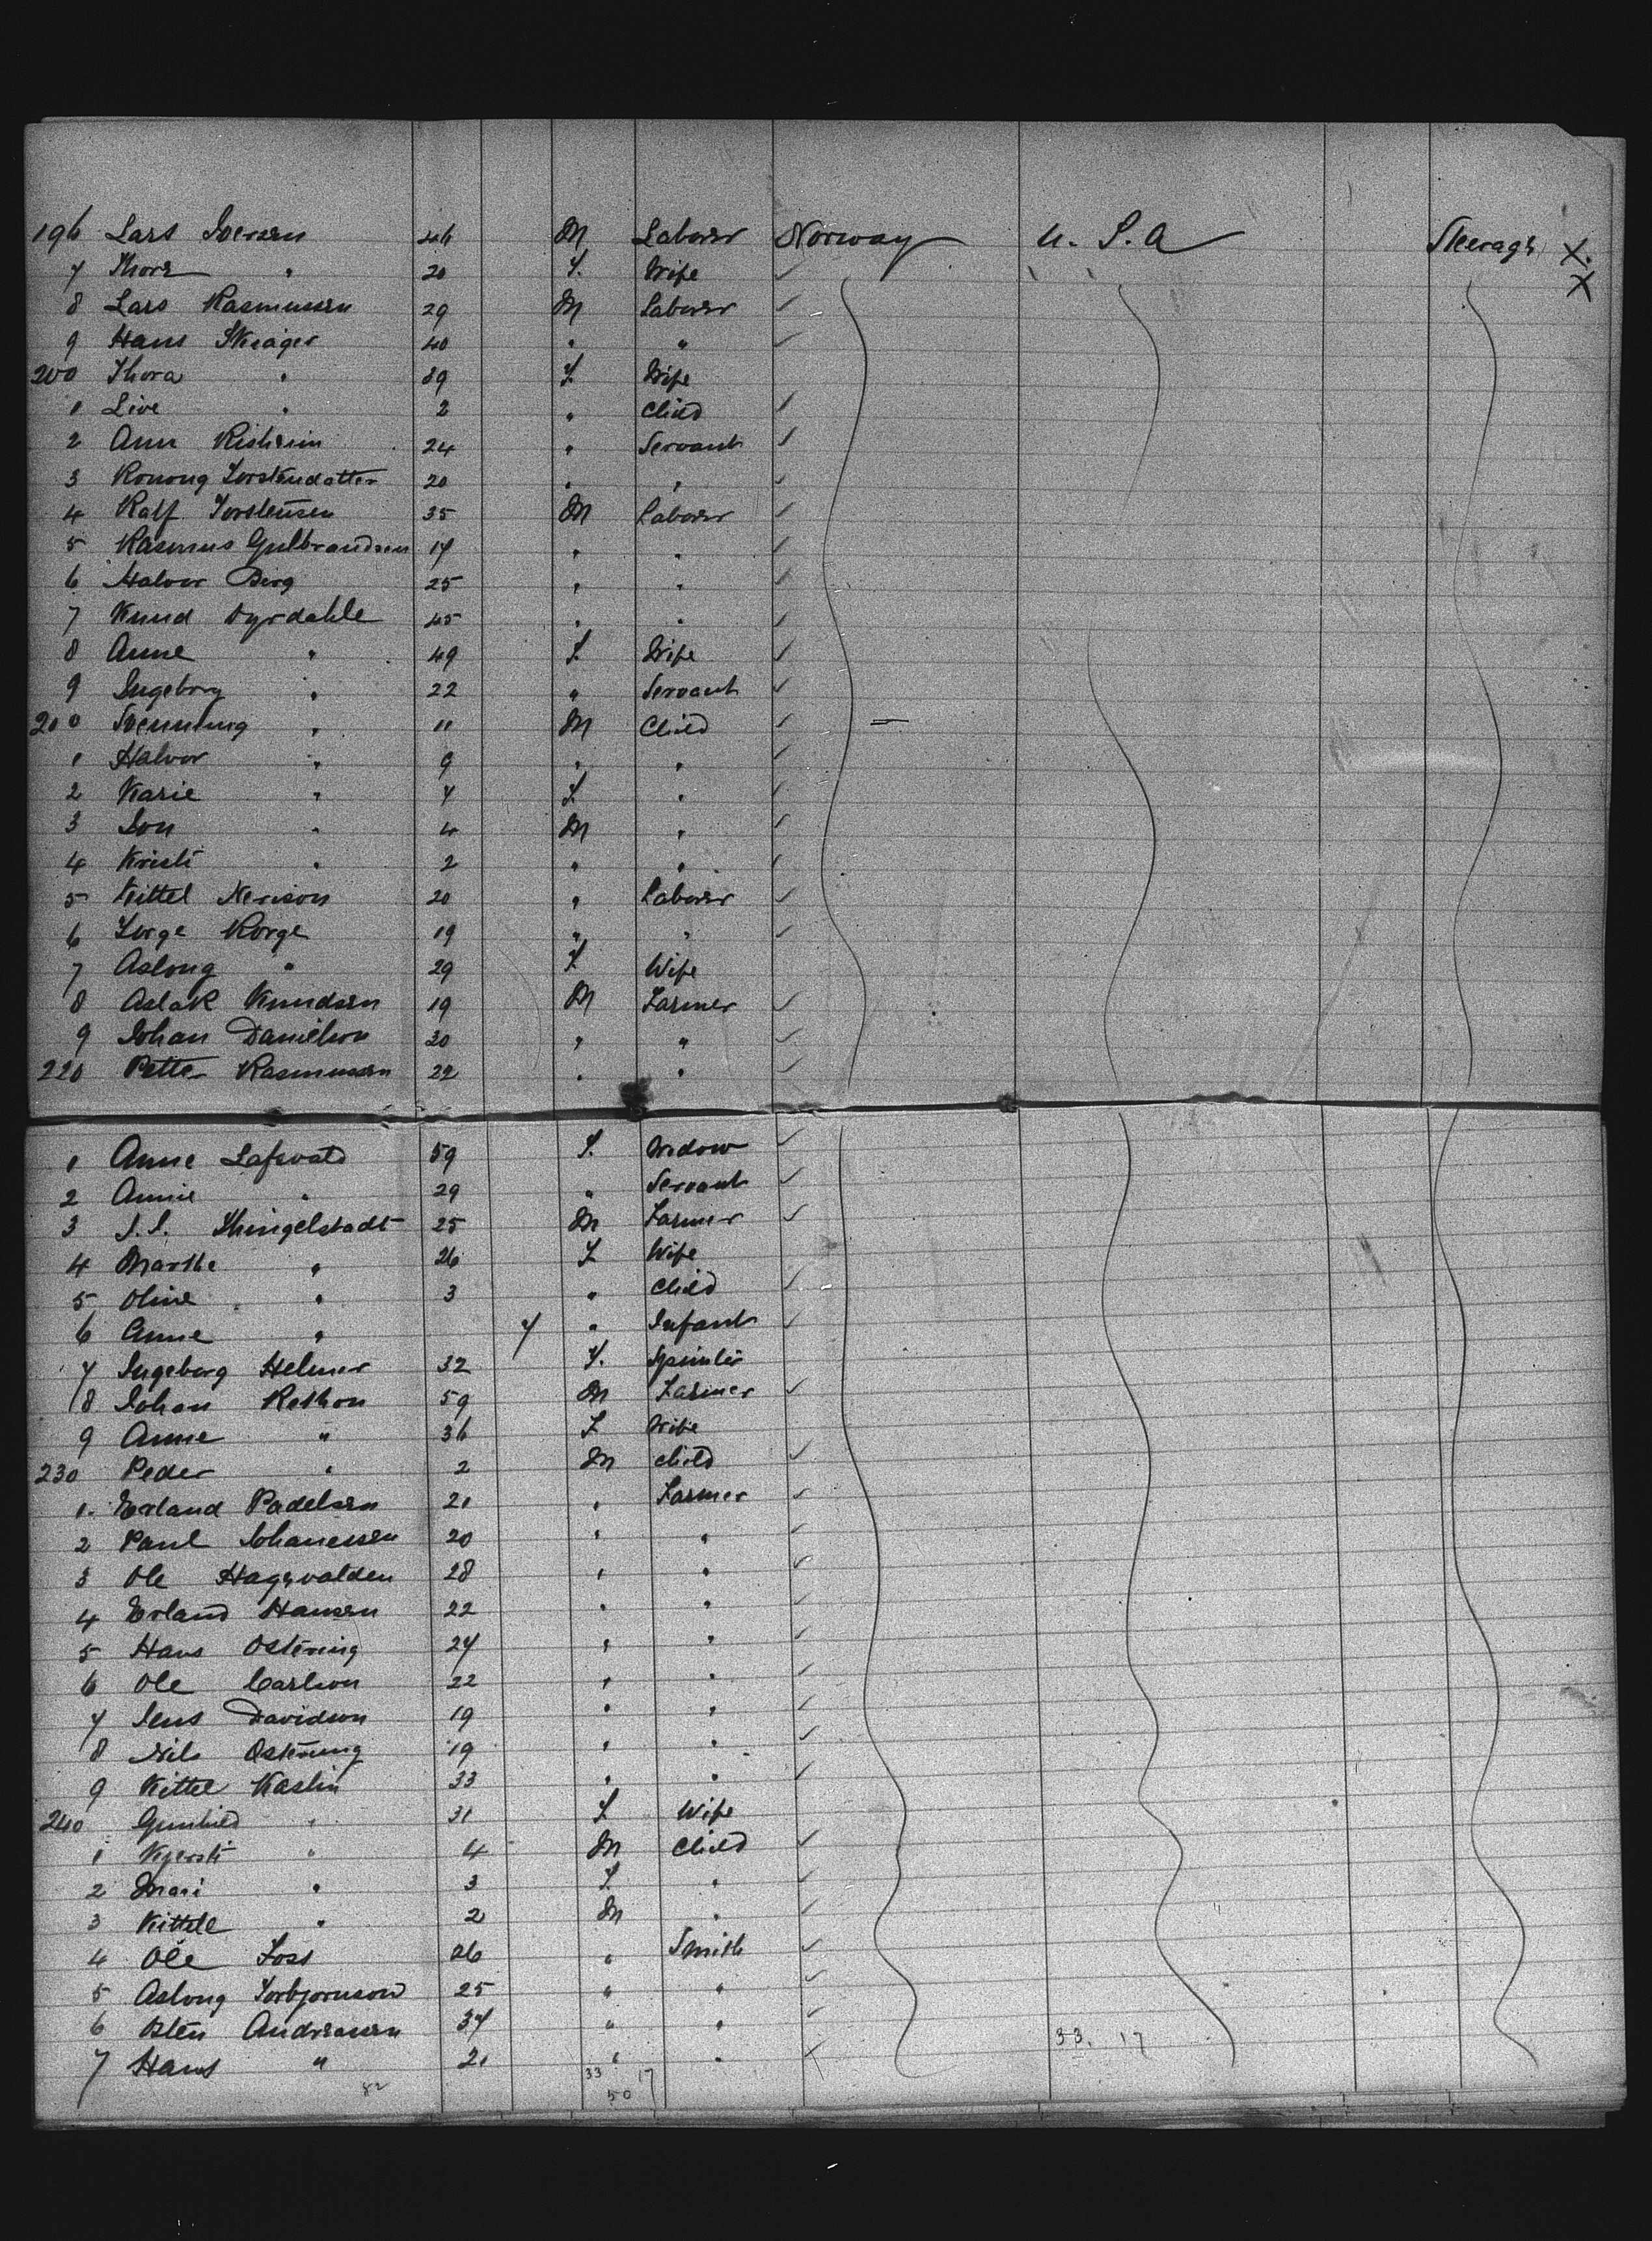 196 Lars Iversen 46 M Laborer Norway U. S. A Steerage X.
7 Thore " 20 F. Wife X
8 Lars Rasmussen 29 M Laborer
9 Hans Skiager 40 " "
200 Thora " 39 F. Wife
1 Live " 2 " Child
2 Ann Risheim 24 " Servant
3 Ronong Torstendatter 20 " "
4 Ralf Torstensen 35 M Laborer
5 Rasmus Gulbrandsen 17 " "
6 Halvor Berg 25 " "
7 Knud Dyrdahle 45 " "
8 Anne " 49 F. Wife
9 Ingeborg " 22 " Servant
210 " 11 M Child
1 Halvor " 9 " "
2 Karie " 7 F. "
3 Jon " 4 M "
4 Kristi " 2 " "
5 Kittel Nerison 20 " Laborer
6 Torge Korge 19 " "
7 Aslong " 29 F. Wife
8 Aslak Knudsen 19 M Farmer
9 Johan Danielson 20 " "
220 Petter Rasmussen 22 " "
1 Anne 59 F. Widow
2 Annie " 29 " Servant
3 25 M Farmer
4 Marthe " 26 F Wife
5 Oline " 3 " Child
6 Anne " 7 " Infant
7 Ingeborg Helmer 32 F. Spinster
8 Johan Rethon 59 M Farmer
9 Anne " 36 F Wife
230 Peder " 2 M Child
1. Erland Padelsen 21 " Farmer
2 Paul Johanessen 20 " "
3 Ole Hagevalden 28 " "
4 Erland Hansen 22 " "
5 Hans Ostering 24 " "
6 Ole Carlson 22 " "
7 Jens Davidson 19 " "
8 Nils Ostering 19 " "
9 Kittel Kaslin 33 " "
240 Gunhild " 31 F Wife
1 Kjersti " 4 M Child
2 Mari " 3 F. "
3 Kittele " 2 M "
4 Ole Foss 26 " Smith
5 Aslong Torbjornson 25 " "
6 Sten Andreasen 34 " " 33. 17
7 Hans " 21 " "
82 33 17
50